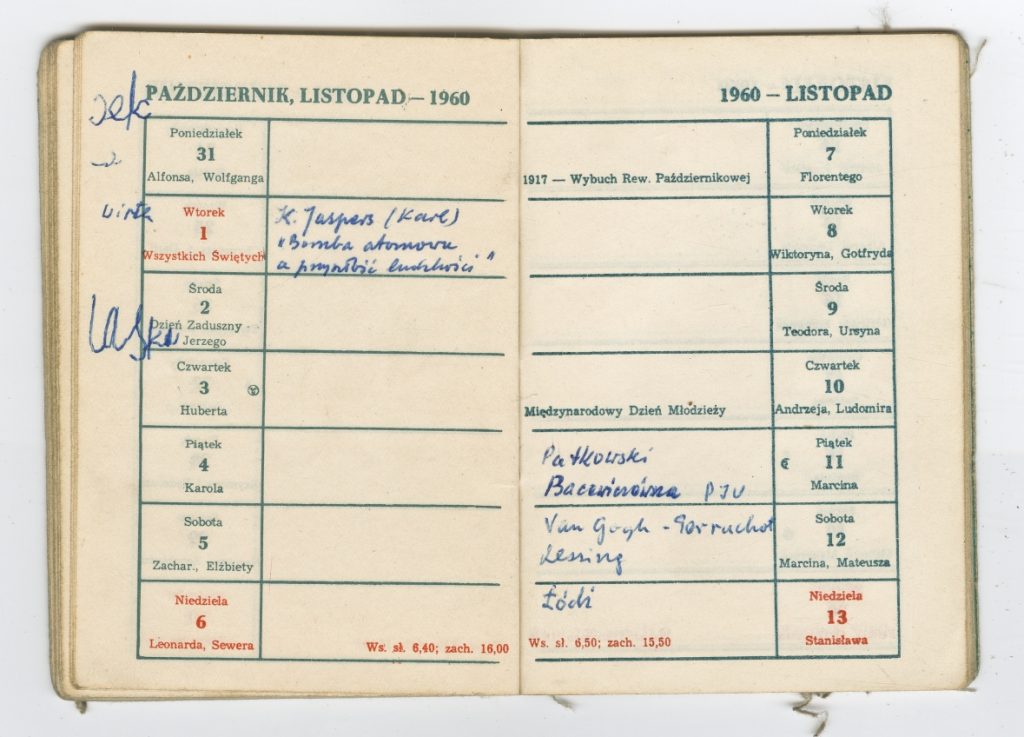 PAŹDZIERNIK, LISTOPAD — 1960
Poniedziałek
31
Alfonsa, Wolfganga
Wtorek
1
Wszystkich Świętych
K. Jaspers (Karl)
"Bomba atomowa
a przyszłość ludzkości"
Środa
2
Dzień Zaduszny
Jerzego
Czwartek
3
Huberta
Piątek
4
Karola
Sobota
5
Zachar., Elżbiety
Niedziela
6
Leonarda, Sewera
Ws. sł. 6,40; zach. 16,00
1960 — LISTOPAD
Poniedziałek
7
Florentego
1917 — Wybuch Rew. Październikowej
Wtorek
8
Wiktoryna, Gotfryda
Środa
9
Teodora, Ursyna
Czwartek
10
Andrzeja, Ludomira
Międzynarodowy Dzień Młodzieży
Patkowski
Bacewiczówna
Piątek
11
Marcina
Van Gogh -
Lessing
Sobota
12
Marcina, Mateusza
Łódź
Niedziela
13
Stanisława
Ws. sł. 6,50; zach. 15,50